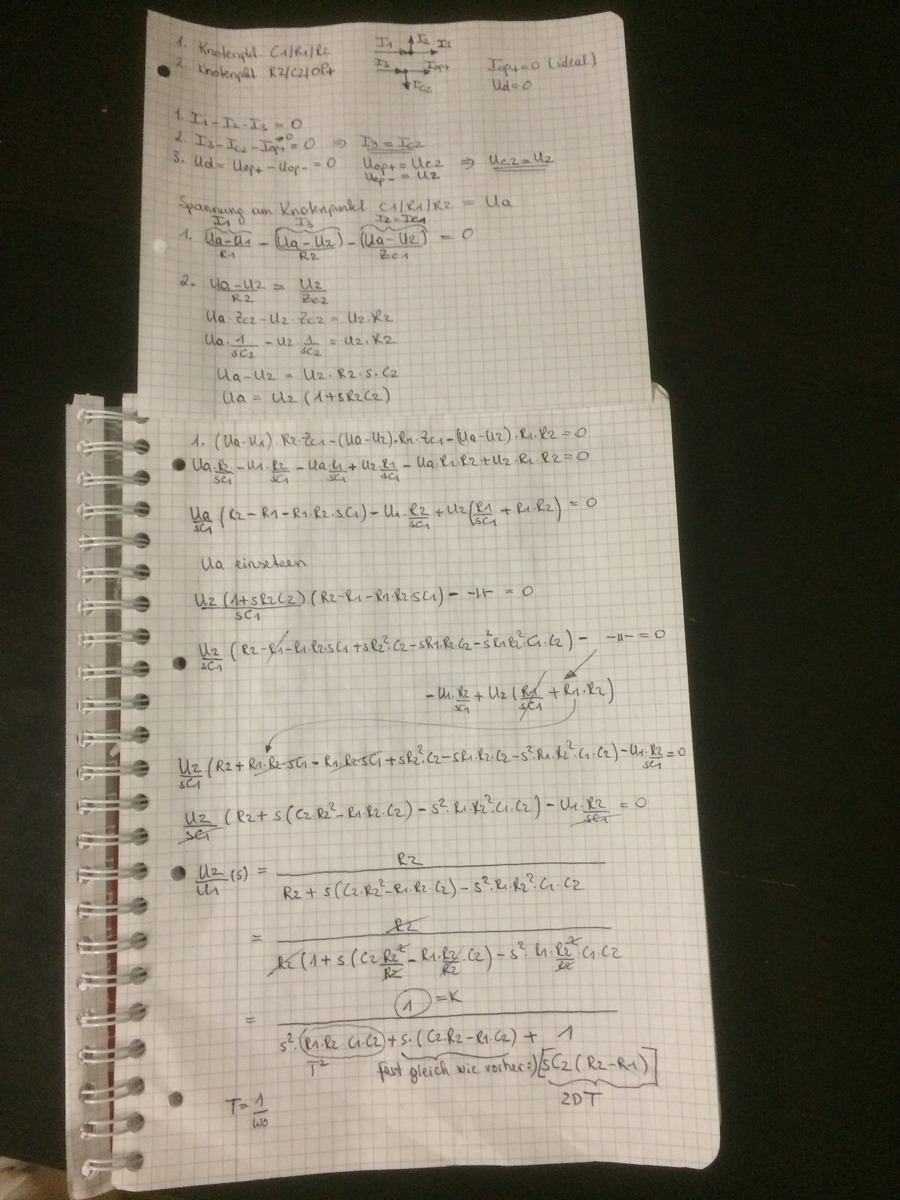 1. Knotenpkt C1/R1/R2 I1 I2 I3
2. Knotenpkt R2/C2/OP+ I3 Iop+ IC2 Iop+ = 0 (ideal)
Ud = 0
1. I1 - I2 - I3 = 0
2. I3 - IC2 - Iop+ = 0 ⇒ I3 = IC2
3. Ud = Uop+ - Uop- = 0 Uop+ = UC2 ⇒ UC2 = U2
Uop- = U2
Spannung am Knotenpunkt C1/R1/R2 = Ua
I1 I3 I2 = IC1
1. (Ua - U1)/R1 - (Ua - U2)/R2 - (Ua - U2)/ZC1 = 0
2. (Ua - U2)/R2 = U2/ZC2
Ua · ZC2 - U2 · ZC2 = U2 · R2
Ua · 1/sC2 - U2 · 1/sC2 = U2 · R2
Ua - U2 = U2 · R2 · s · C2
Ua = U2 (1 + sR2C2)
1. (Ua - U1) · R2 · ZC1 - (Ua - U2) · R1 · ZC1 - (Ua - U2) · R1 · R2 = 0
Ua · R2/sC1 - U1 · R2/sC1 - Ua · R1/sC1 + U2 · R1/sC1 - Ua · R1 · R2 + U2 · R1 · R2 = 0
Ua/sC1 (R2 - R1 - R1 · R2 · sC1) - U1 · R2/sC1 + U2 (R1/sC1 + R1 · R2) = 0
Ua einsetzen
U2 (1 + sR2C2)/sC1 (R2 - R1 - R1 · R2 sC1) - -"- = 0
U2/sC1 (R2 - R1 - R1 · R2 sC1 + sR2² · C2 - sR1 · R2 · C2 - s² R1 R2² · C1 · C2) - -"- = 0
- U1 · R2/sC1 + U2 (R1/sC1 + R1 · R2)
U2/sC1 (R2 + R1 · R2 · sC1 - R1 · R2 · sC1 + sR2² · C2 - sR1 · R2 · C2 - s² · R1 · R2² · C1 · C2) - U1 · R2/sC1 = 0
U2/sC1 (R2 + s (C2 · R2² - R1 · R2 · C2) - s² · R1 · R2² · C1 · C2) - U1 · R2/sC1 = 0
U2/U1 (s) = R2/(R2 + s (C2 · R2² - R1 · R2 · C2) - s² · R1 · R2² · C1 · C2)
= R2/(R2 (1 + s (C2 R2²/R2 - R1 · R2/R2 · C2) - s² · R1 · R2²/R2 · C1 · C2
1 = K
= 1/(s² · (R1 · R2 · C1 · C2) + s · (C2 · R2 - R1 · C2) + 1
T² fast gleich wie vorher :) [sC2 (R2 - R1)]
T = 1/ω0 2DT